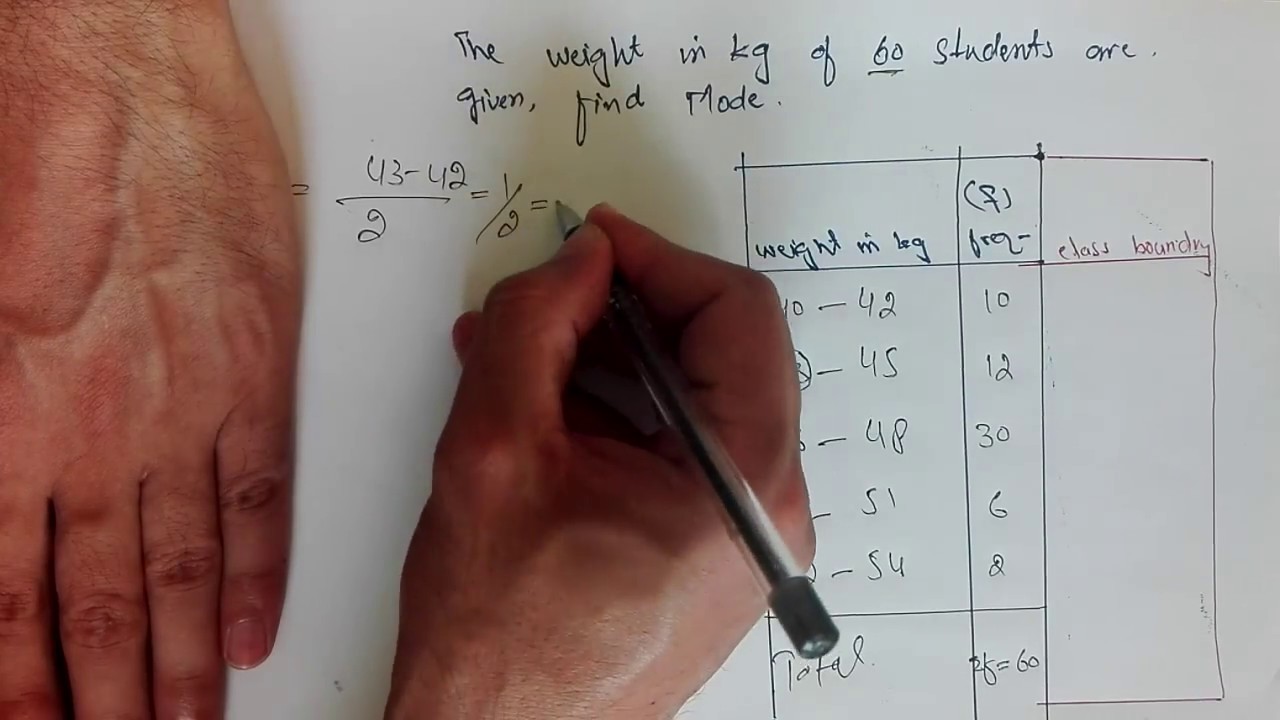 The weight in kg of 60 students are.
given, find Mode.
= 43-42 / 2 = 1/2 =
(f)
weight in kg freq- class boundry
40 — 42 10
— 45 12
— 48 30
— 51 6
— 54 2
Total. Σf=60